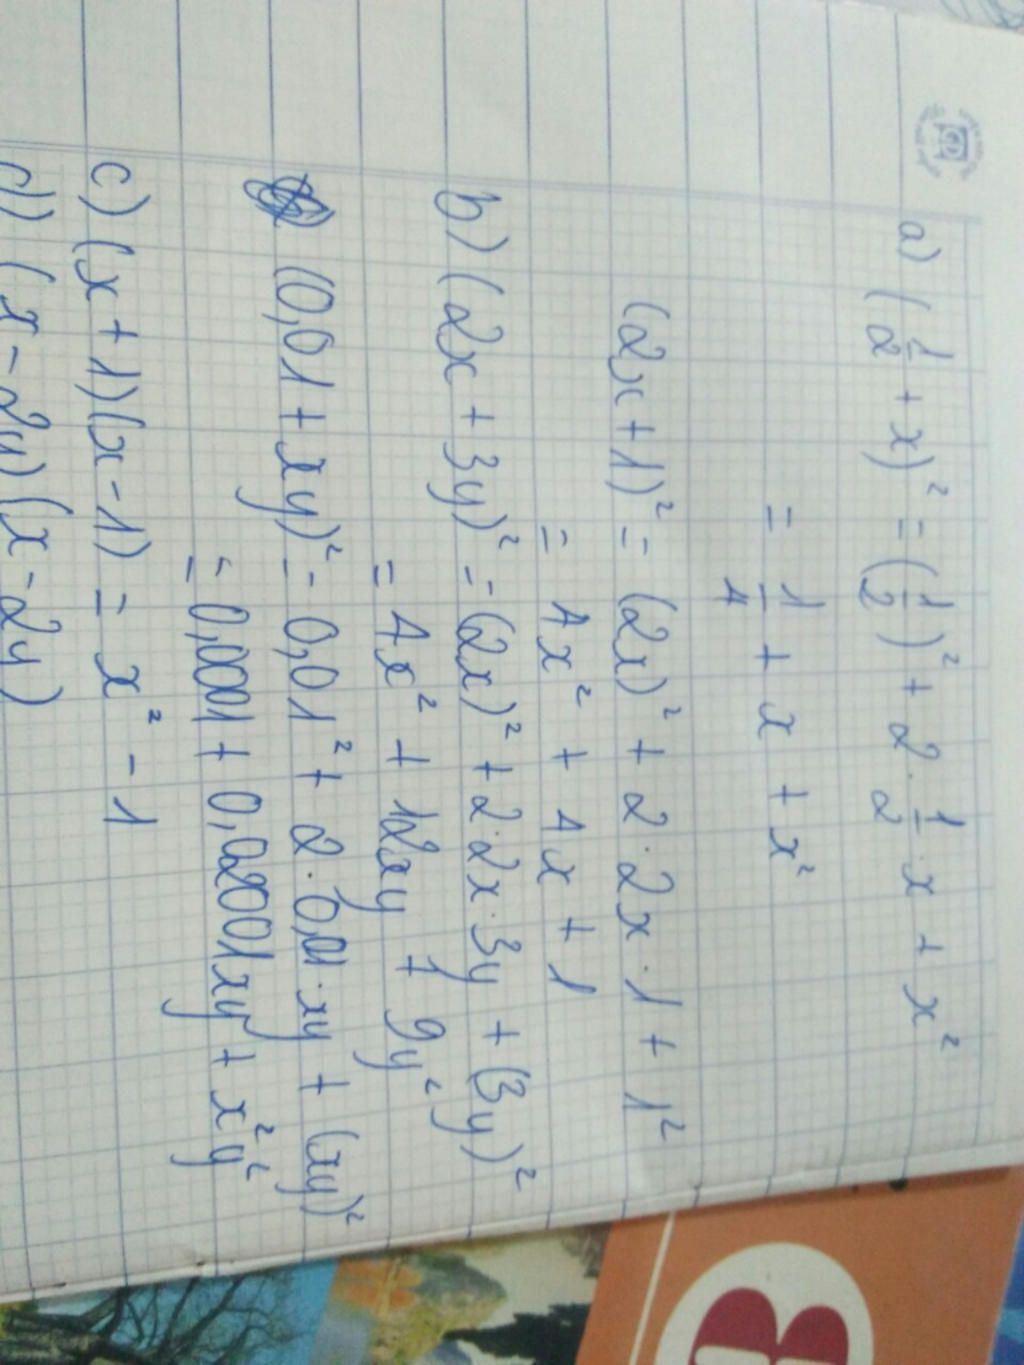 a) (1/2 + x)² = (1/2)² + 2 · 1/2 · x + x²
= 1/4 + x + x²
(2x + 1)² = (2x)² + 2 · 2x · 1 + 1²
= 4x² + 4x + 1
b) (2x + 3y)² = (2x)² + 2 · 2x · 3y + (3y)²
= 4x² + 12xy + 9y²
(0,01 + xy)² = 0,01² + 2 · 0,01 · xy + (xy)²
= 0,0001 + 0,02001xy + x²y²
c) (x + 1)(x - 1) = x² - 1
d) (x - 2y)(x - 2y)